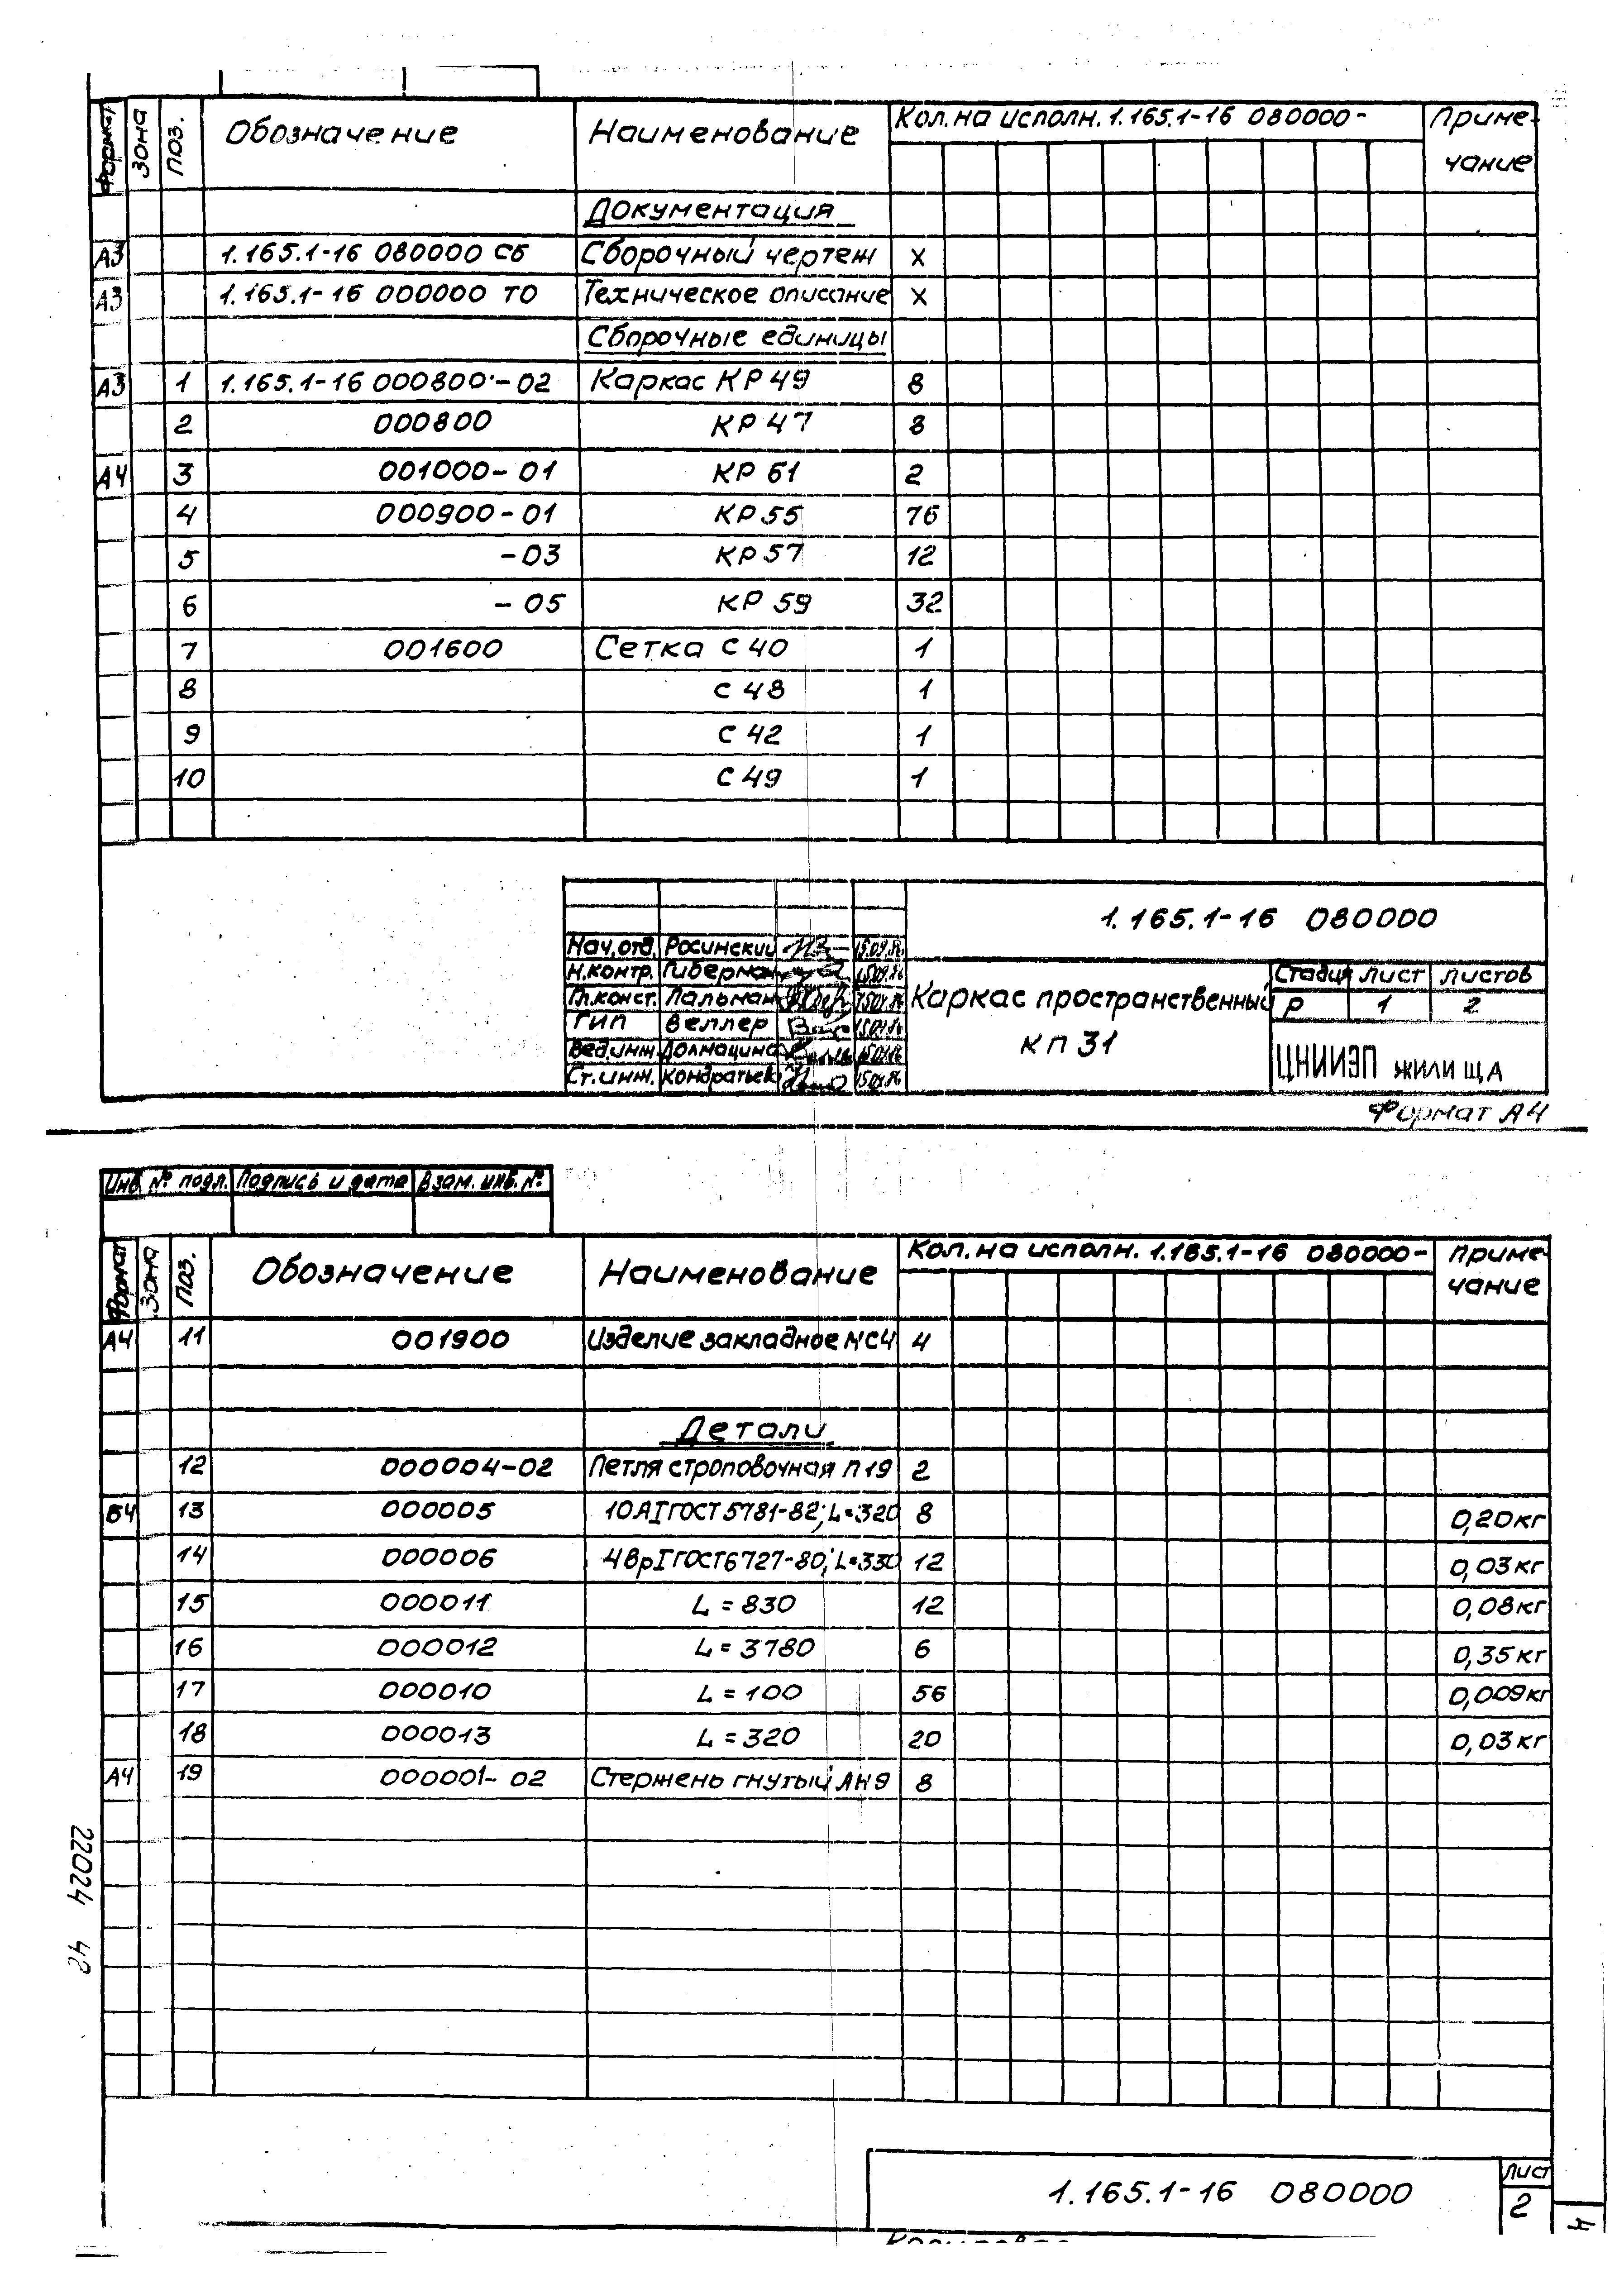 Формат Зона Поз. Обозначение Наименование Кол. на исполн. 1.165.1-16 080000- Приме-
чание
Документация
А3 1.165.1-16 080000 СБ Сборочный чертеж Х
А3 1.165.1-16 000000 ТО Техническое описание Х
Сборочные единицы
А3 1 1.165.1-16 000800-02 Каркас КР 49 8
2 000800 КР 47 8
А4 3 001000-01 КР 61 2
4 000900-01 КР 55 76
5 -03 КР 57 12
6 -05 КР 59 32
7 001600 Сетка С 40 1
8 С 48 1
9 С 42 1
10 С 49 1
1.165.1-16 080000
Нач.отд. Росинский 15.09.86
Н.контр. Гиберман 15.09.86
Гл.конст. Пальман 15.09.86
ГИП Веллер 15.09.86
Вед.инж. Долмацина 15.09.86
Ст.инж. Кондратьева 15.09.86
Каркас пространственный
КП 31
Стадия Лист Листов
Р 1 2
ЦНИИЭП жилища
Формат А4
Инв. № подл. Подпись и дата Взам. инв. №
Формат Зона Поз. Обозначение Наименование Кол. на исполн. 1.165.1-16 080000- Приме-
чание
А4 11 001900 Изделие закладное МС4 4
Детали
12 000004-02 Петля строповочная П19 2
Б4 13 000005 10АI ГОСТ 5781-82; L=320 8 0,20кг
14 000006 4ВрI ГОСТ 6727-80; L=330 12 0,03кг
15 000011 L=830 12 0,08кг
16 000012 L=3780 6 0,35кг
17 000010 L=100 56 0,009кг
18 000013 L=320 20 0,03кг
А4 19 000001-02 Стержень гнутый АН9 8
22024 42
1.165.1-16 080000
Лист
2